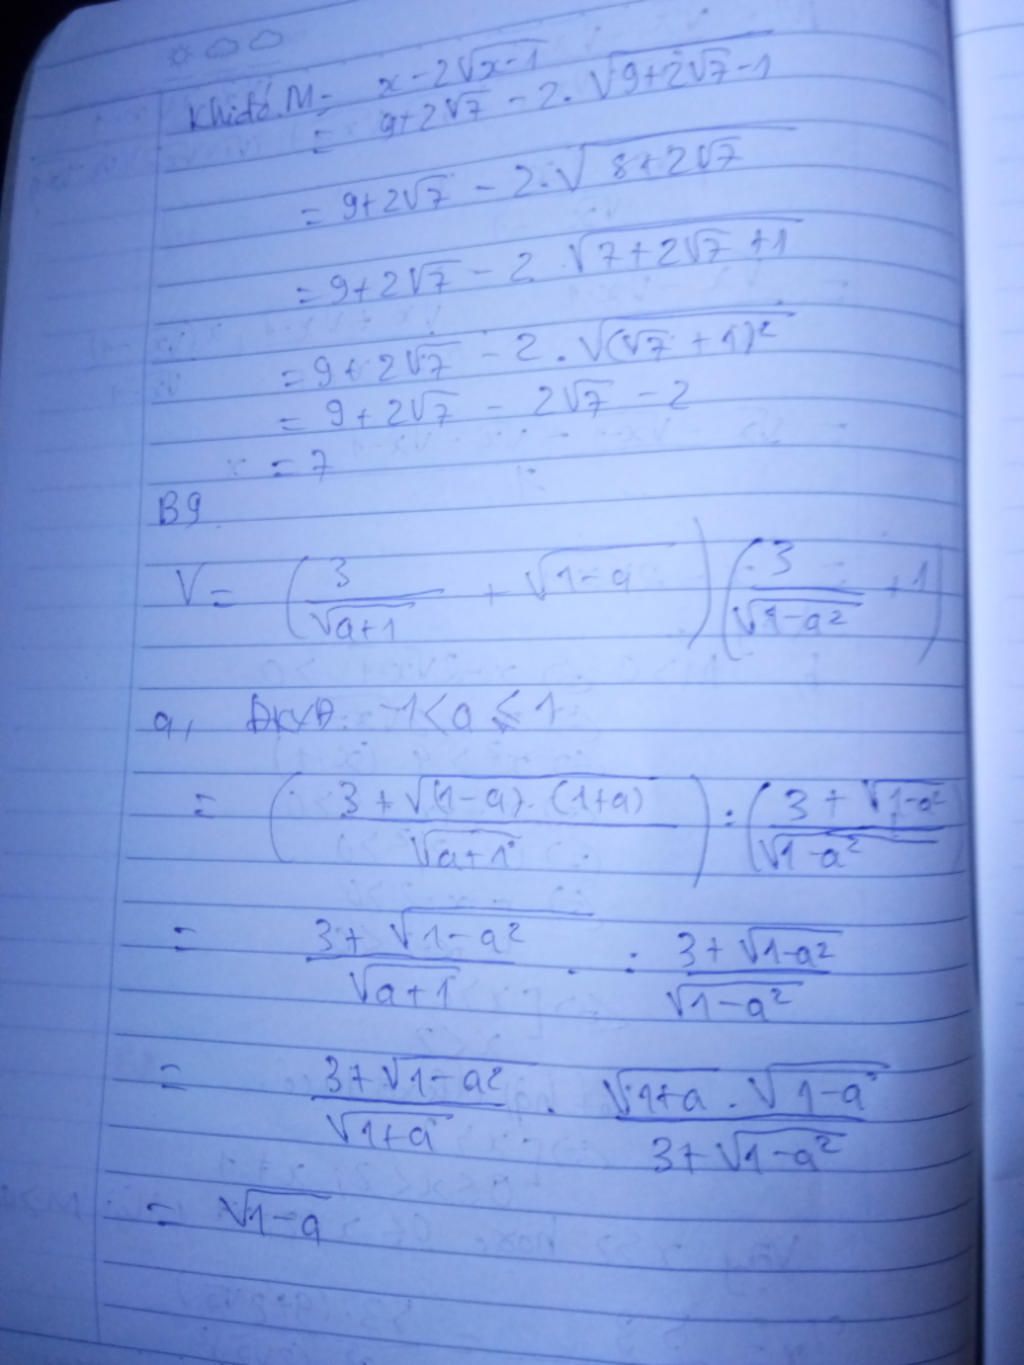 Khi đó M = x - 2√(x-1)
= 9+2√7 - 2. √(9+2√7-1)
= 9+2√7 - 2.√(8+2√7)
= 9+2√7 - 2. √(7+2√7+1)
= 9+2√7 - 2.√((√7+1)²)
= 9+2√7 - 2√7 - 2
= 7
B9
V = (3/√(a+1) + √(1-a)) (3/√(1-a²) + 1)
a, ĐKXĐ: -1<a≤1
= ((3+√((1-a).(1+a)))/√(a+1)) : ((3+√(1-a²))/√(1-a²)
= (3+√(1-a²))/√(a+1) : (3+√(1-a²))/√(1-a²)
= (3+√(1-a²))/√(1+a) . (√(1+a).√(1-a))/(3+√(1-a²))
= √(1-a)